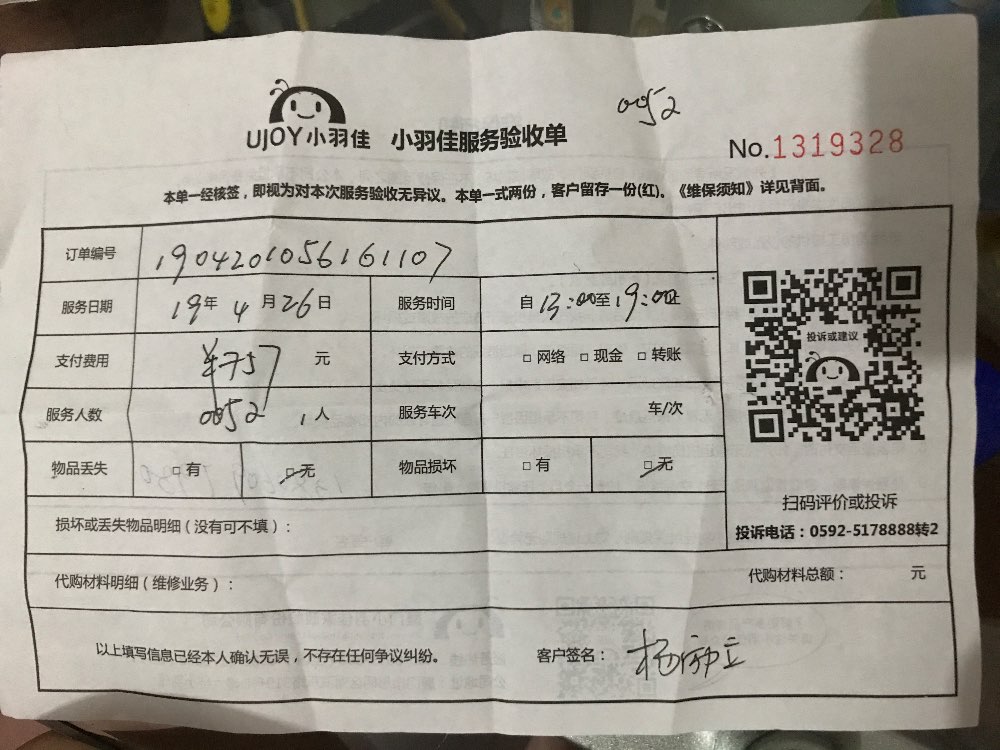 0052
UJOY小羽佳 小羽佳服务验收单
No.1319328
本单一经核签，即视为对本次服务验收无异议。本单一式两份，客户留存一份(红)。《维保须知》详见背面。
订单编号 1904201056161107
服务日期 19年4月26日 服务时间 自13:00至19:00止
支付费用 ¥757元 支付方式 □网络 □现金 □转账
服务人数 0052 1人 服务车次 车/次
物品丢失 □有 □无 物品损坏 □有 □无
投诉或建议
扫码评价或投诉
投诉电话：0592-5178888转2
损坏或丢失物品明细（没有可不填）：
代购材料明细（维修业务）： 代购材料总额： 元
以上填写信息已经本人确认无误，不存在任何争议纠纷。 客户签名：